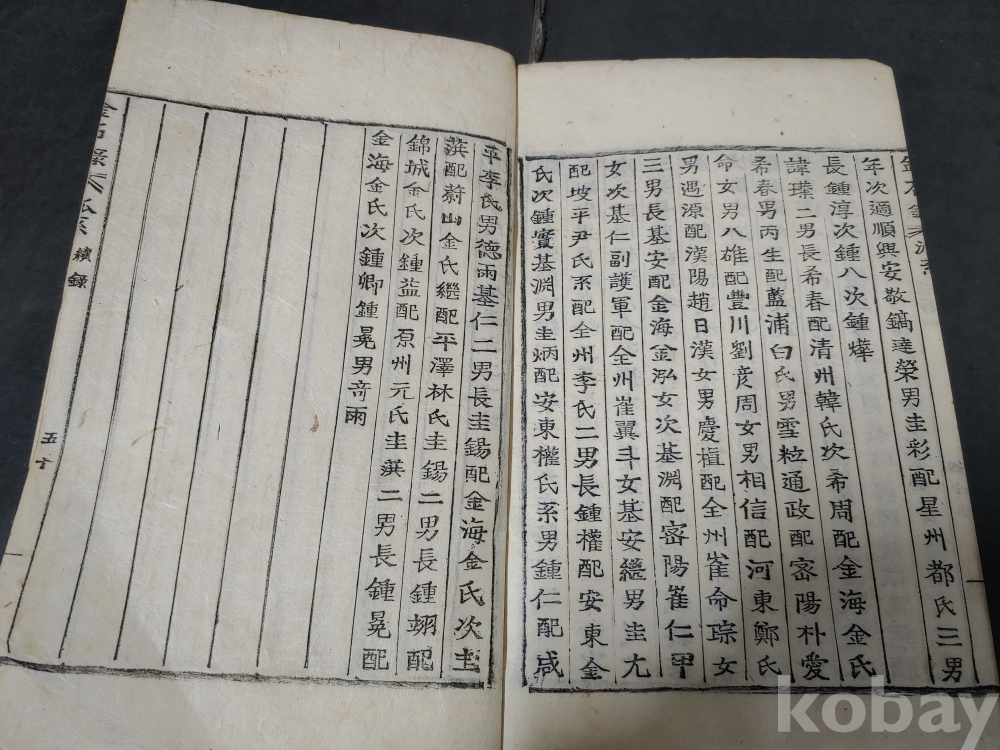 年次適順興安敬鎬達榮男圭彩配星州都氏三男
長鍾淳次鍾八次鍾燁
諱瑧二男長希春配清州韓氏次希周配金海金氏
希春男丙生配藍浦白氏男雪粒通政配密陽朴愛
命女男八雄配豐川劉彦周女男相信配河東鄭氏
男遇源配漢陽趙日漢女男慶植配全州崔命琮女
三男長基安配金海金泓女次基淵配密陽崔仁甲
女次基仁副護軍配全州崔翼斗女基安繼男圭尤
配坡平尹氏系配全州李氏二男長鍾權配安東金
氏次鍾實基淵男圭炳配安東權氏系男鍾仁配咸
平李氏男德雨基仁二男長圭錫配金海金氏次圭
蓂配蔚山金氏繼配平澤林氏圭錫二男長鍾翊配
錦城金氏次鍾益配原州元氏圭蓂二男長鍾晃配
金海金氏次鍾卿鍾晃男奇雨
續錄
五十
kobay